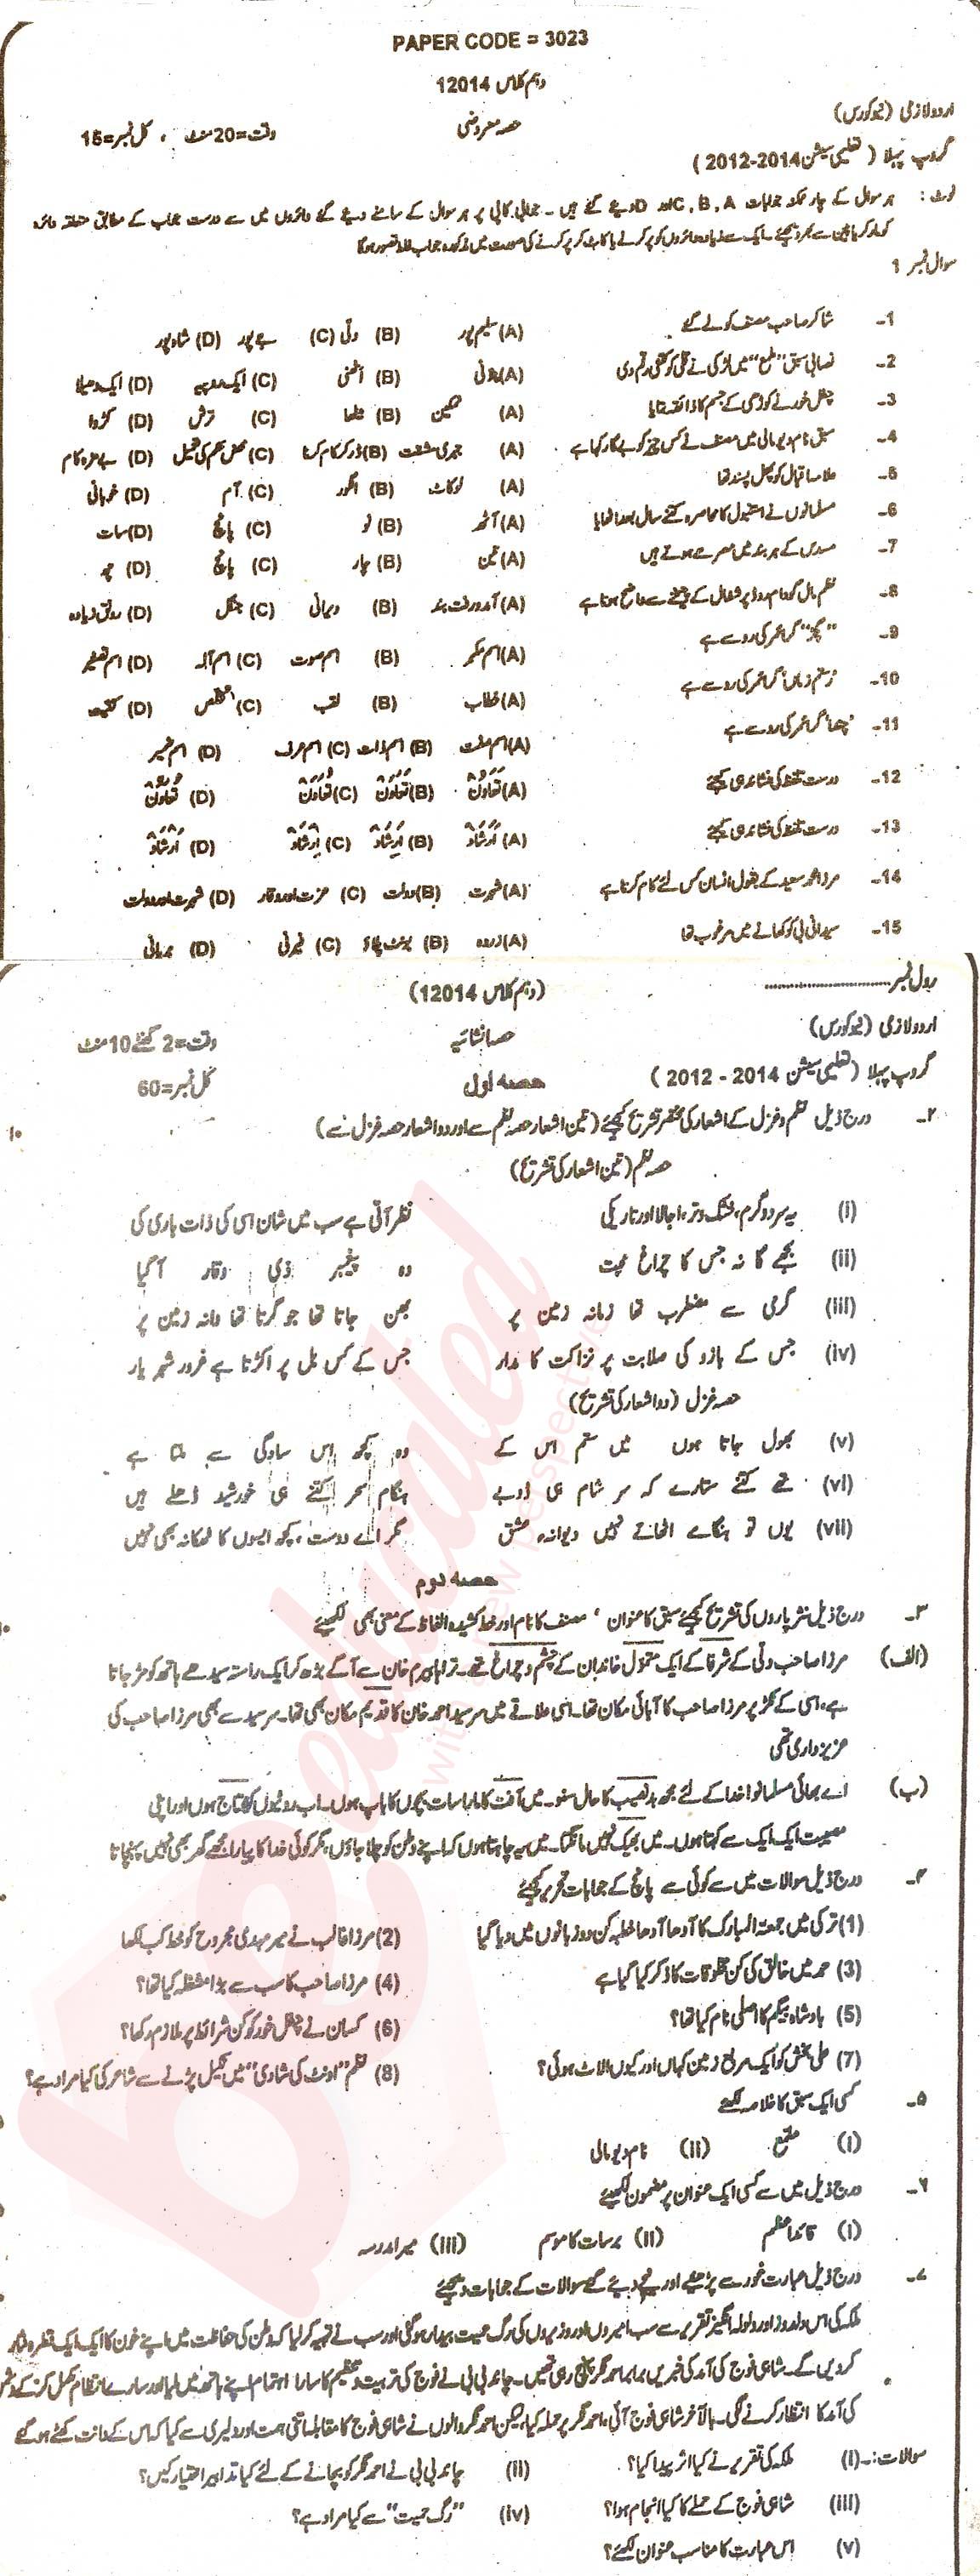 PAPER CODE = 3023
دہم کلاس 12014
اردو لازمی (نیو کورس)
حصہ معروضی
وقت=20 منٹ ، کل نمبر=15
گروپ پہلا ( تعلیمی سیشن 2014-2012 )
نوٹ : ہر سوال کے چار ممکنہ جوابات C ، B ، A اور D دیئے گئے ہیں ۔ جوابی کاپی پر ہر سوال کے سامنے دیئے گئے دائروں میں سے درست جواب کے مطابق متعلقہ دائرہ
کو مارکر یا پین سے بھر دیجئے۔ ایک سے زیادہ دائروں کو پُر کرنے یا کاٹ کر پُر کرنے کی صورت میں مذکورہ جواب غلط تصور ہوگا
سوال نمبر 1
1- شاکر صاحب مصنف کو لے گئے (A) سلیم پور (B) دلّی (C) جے پور (D) شاہ پور
2- نصابی سبق "ملمع" میں لڑکی نے قلی کو کتنی رقم دی (A) (B) اٹھنی (C) ایک روپیہ (D) ایک دھیلا
3- چغل خور نے کوڑھی کے جسم کا ذائقہ بتایا (A) نمکین (B) میٹھا (C) ترش (D) کڑوا
4- سبق نام دیو مالی میں مصنف نے کس چیز کو بے گار کہا ہے (A) جبری مشقت (B) ڈر کر کام کرنا (C) محض حکم کی تعمیل (D) بے مزہ کام
5- علامہ اقبال کو پھل پسند تھا (A) لوکاٹ (B) انگور (C) آم (D) خوبانی
6- مسلمانوں نے استنبول کا محاصرہ کتنے سال بعد اٹھایا (A) آٹھ (B) نو (C) پانچ (D) سات
7- مسدس کے ہر بند میں مصرعے ہوتے ہیں (A) تین (B) چار (C) پانچ (D) چھ
8- نظم مال گودام روڈ پر شغال کے چیخنے سے واضح ہوتا ہے (A) آمدورفت بند (B) ویرانی (C) جنگل (D) رونق زیادہ
9- گرائمر کی رو سے ہے (A) اسم مکبر (B) اسم صوت (C) اسم آلہ (D) اسم تصغیر
10- "رستم زماں" گرائمر کی رو سے ہے (A) خطاب (B) لقب (C) تخلص (D) کنیت
11- گرائمر کی رو سے ہے (A) اسم صفت (B) اسم ذات (C) اسم ظرف (D) اسم ضمیر
12- درست تلفظ کی نشاندہی کیجئے (A) تَعَاوُنْ (B) تَعَاوَنْ (C) تُعَاوَنْ (D) تُعَاوُنْ
13- درست تلفظ کی نشاندہی کیجئے (A) اَرشَادْ (B) اَرِشَادْ (C) اِرْشَادْ (D) اَرْشَادْ
14- مرزا محمد سعید کے بقول انسان کس لئے کام کرتا ہے (A) شہرت (B) دولت (C) عزت اور وقار (D) شہرت اور دولت
15- سیدانی بی کو کھانے میں مرغوب تھا (A) زردہ (B) پلاؤ (C) فیرنی (D) بریانی
رول نمبر
(دہم کلاس 12014)
اردو لازمی (نیو کورس)
حصہ انشائیہ
وقت=2 گھنٹے 10 منٹ
گروپ پہلا (تعلیمی سیشن 2014 - 2012 )
حصہ اول
کل نمبر=60
۲- درج ذیل نظم و غزل کے اشعار کی مختصر تشریح کیجئے (تین اشعار حصہ نظم سے اور دو اشعار حصہ غزل سے) ۱۰
حصہ نظم (تین اشعار کی تشریح)
(i) یہ سرد و گرم، خشک و تر، اجالا اور تاریکی نظر آتی ہے سب میں شان اسی کی ذات باری کی
(ii) بجھے گا نہ جس کا چراغِ محبت وہ پیغمبر ذی وقار آگیا
(iii) گرمی سے مضطرب تھا زمانہ زمین پر بھن جاتا تھا جو گرتا تھا دانہ زمین پر
(iv) جس کے بازو کی صلابت پر نزاکت کا مدار جس کے کس بل پر اکڑتا ہے غرور شہر یار
حصہ غزل (دو اشعار کی تشریح)
(v) بھول جاتا ہوں میں ستم اس کے وہ کچھ اس سادگی سے ملتا ہے
(vi) تھے کتنے ستارے کہ سر شام ہی ڈوبے ہنگام سحر کتنے ہی خورشید ڈھلے ہیں
(vii) یوں تو ہنگامے اٹھاتے نہیں دیوانہء عشق مگر اے دوست، کچھ ایسوں کا ٹھکانہ بھی نہیں
حصہ دوم
۳- درج ذیل نثر پاروں کی تشریح کیجئے سبق کا عنوان ، مصنف کا نام اور خط کشیدہ الفاظ کے معنی بھی لکھیئے ۱۰
(الف) مرزا صاحب دلّی کے شرفا کے ایک متمول خاندان کے چشم و چراغ تھے۔ تراہا بیرم خان سے آگے بڑھ کر ایک راستہ سیدھے ہاتھ کو مڑ جاتا
ہے، اسی کے نکڑ پر مرزا صاحب کا آبائی مکان تھا۔ اسی علاقے میں سرسید احمد خان کا قدیم مکان بھی تھا۔ سرسید سے بھی مرزا صاحب کی
عزیز داری تھی
(ب) اے بھائی مسلمانو! خدا کے لئے مجھ بدنصیب کا حال سنو۔ میں آفت کا مارا سات بچوں کا باپ ہوں۔ اب روٹیوں کا محتاج ہوں اور اپنی
مصیبت ایک ایک سے کہتا ہوں۔ میں بھیک نہیں مانگتا۔ میں یہ چاہتا ہوں کہ اپنے وطن کو چلا جاؤں، مگر کوئی خدا کا پیارا مجھے گھر بھی نہیں پہنچاتا
۴- درج ذیل سوالات میں سے کوئی سے پانچ کے جوابات تحریر کیجئے
(1) ترکی میں جمعۃ المبارک کا آدھا آدھا خطبہ کن دو زبانوں میں دیا گیا (2) مرزا غالب نے میر مہدی مجروح کو خط کب لکھا
(3) حمد میں خالق کی کن مخلوقات کا ذکر کیا گیا ہے (4) مرزا صاحب کا سب سے بڑا مشغلہ کیا تھا؟
(5) بادشاہ بیگم کا اصلی نام کیا تھا؟ (6) کسان نے چغل خور کو کن شرائط پر ملازم رکھا؟
(7) علی بخش کو ایک مربع زمین کہاں اور کیوں الاٹ ہوئی؟ (8) نظم "اونٹ کی شادی" میں نکیل پڑنے سے شاعر کی کیا مراد ہے؟
۵- کسی ایک سبق کا خلاصہ لکھئے
(i) ملمع (ii) نام دیو مالی
۶- درج ذیل میں سے کسی ایک عنوان پر مضمون لکھیئے
(i) قائداعظم (ii) برسات کا موسم (iii) میرا مدرسہ
۷- درج ذیل عبارت غور سے پڑھیئے اور نیچے دیئے گئے سوالات کے جوابات دیجئے
ملکہ کی اس ولدوز اور ولولہ انگیز تقریر سے سب امیروں اور وزیروں کی رگ حمیت بیدار ہوگئی اور سب نے تہیہ کر لیا کہ وطن کی حفاظت میں اپنے خون کا ایک ایک قطرہ نثار
کردیں گے۔ شاہی فوج کی آمد کی خبریں برابر احمد نگر پہنچ رہی تھیں۔ چاند بی بی نے فوج کی تربیت و تنظیم کا سارا اہتمام اپنے ہاتھ میں لیا اور سارے انتظام مکمل کرکے دشمن
کی آمد کا انتظار کرنے لگی۔ بالآخر شاہی فوج آئی، احمد نگر پر حملہ کیا، لیکن احمد نگر والوں نے شاہی فوج کا مقابلہ اتنی ہمت اور دلیری سے کیا کہ اس کے دانت کھٹے ہوگئے
سوالات:- (i) ملکہ کی تقریر نے کیا اثر پیدا کیا؟ (ii) چاند بی بی نے احمد نگر کو بچانے کے لئے کیا تدابیر اختیار کیں؟
(iii) شاہی فوج کے حملے کا کیا انجام ہوا؟ (iv) "رگ حمیت" سے کیا مراد ہے؟
(v) اس عبارت کا مناسب عنوان لکھئے؟